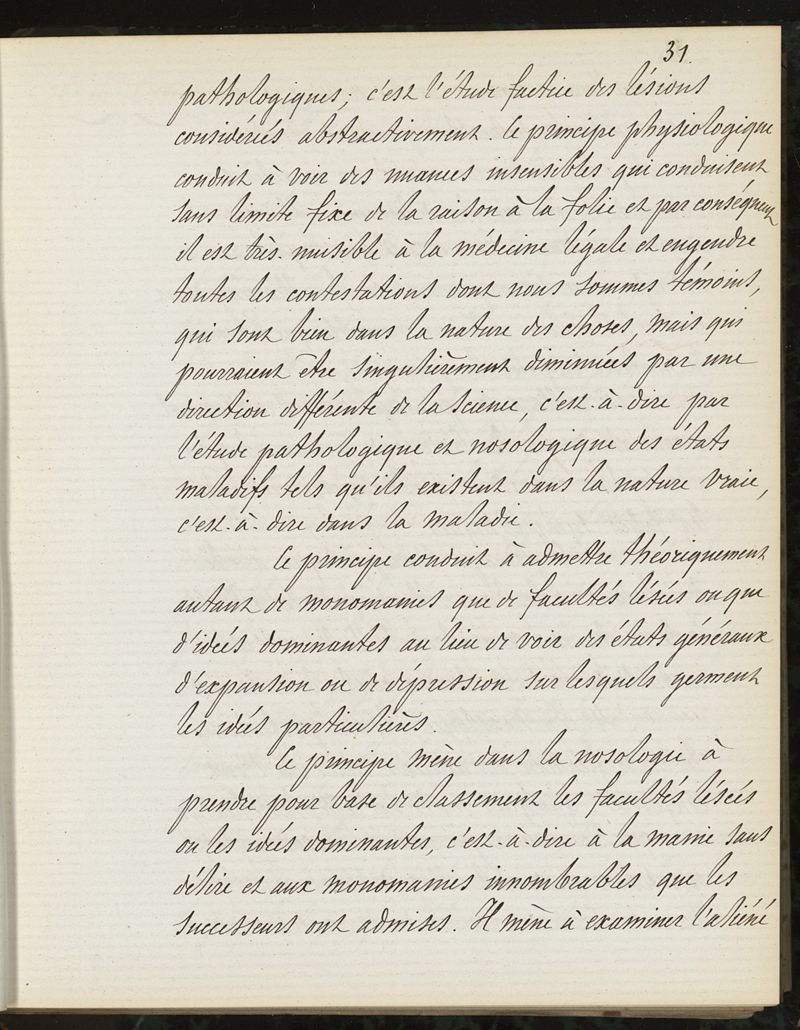 31.
pathologiques; c'est l'étude factice des lésions
considérées abstractivement. Ce principe physiologique
conduit à voir des nuances insensibles qui conduisent
sans limite fixe de la raison à la folie et par conséquent
il est très-nuisible à la médecine légale et engendre
toutes les contestations dont nous sommes témoins,
qui sont bien dans la nature des choses, mais qui
pourraient être singulièrement diminuées par une
direction différente de la science, c'est-à-dire par
l'étude pathologique et nosologique des états
maladifs tels qu'ils existent dans la nature vraie,
c'est-à-dire dans la maladie.
Ce principe conduit à admettre théoriquement
autant de monomanies que de facultés lésées ou que
d'idées dominantes au lieu de voir des états généraux
d'expansion ou de dépression sur lesquels germent
les idées particulières.
Ce principe mène dans la nosologie à
prendre pour base de classement les facultés lésées
ou les idées dominantes, c'est-à-dire à la manie sans
délire et aux monomanies innombrables que les
successeurs ont admises. Il mène à examiner l'aliéné